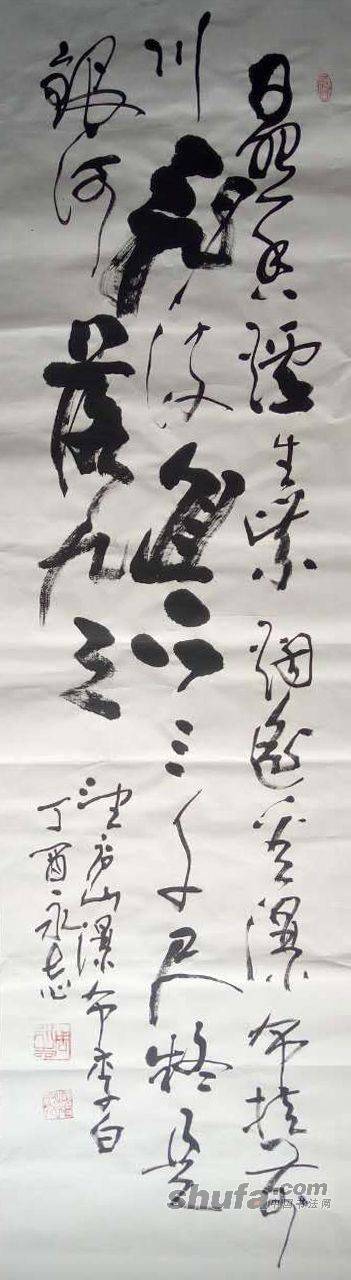 日照香爐生紫烟遥看瀑布挂前
川飛流直下三千尺疑是
銀河落九天
望庐山瀑布李白
丁酉永志
shufa.com
中国书法网